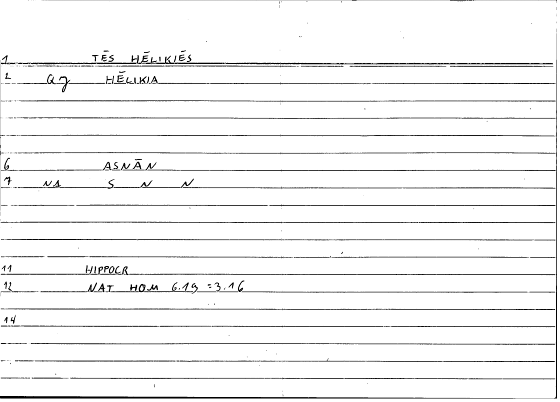 1 TĒS HĒLIKIĒS
2 Gq HĒLIKIA
6 ASNĀN
7 NA S N N
11 HIPPOCR
12 NAT HOM 6.19 =3.16
14